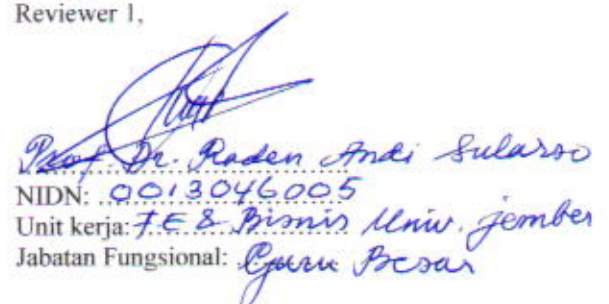 Reviewer 1,
Prof. Dr. Raden Andi Sularso
NIDN: 0013046005
Unit kerja: FE & Bisnis Univ. Jember
Jabatan Fungsional: Guru Besar